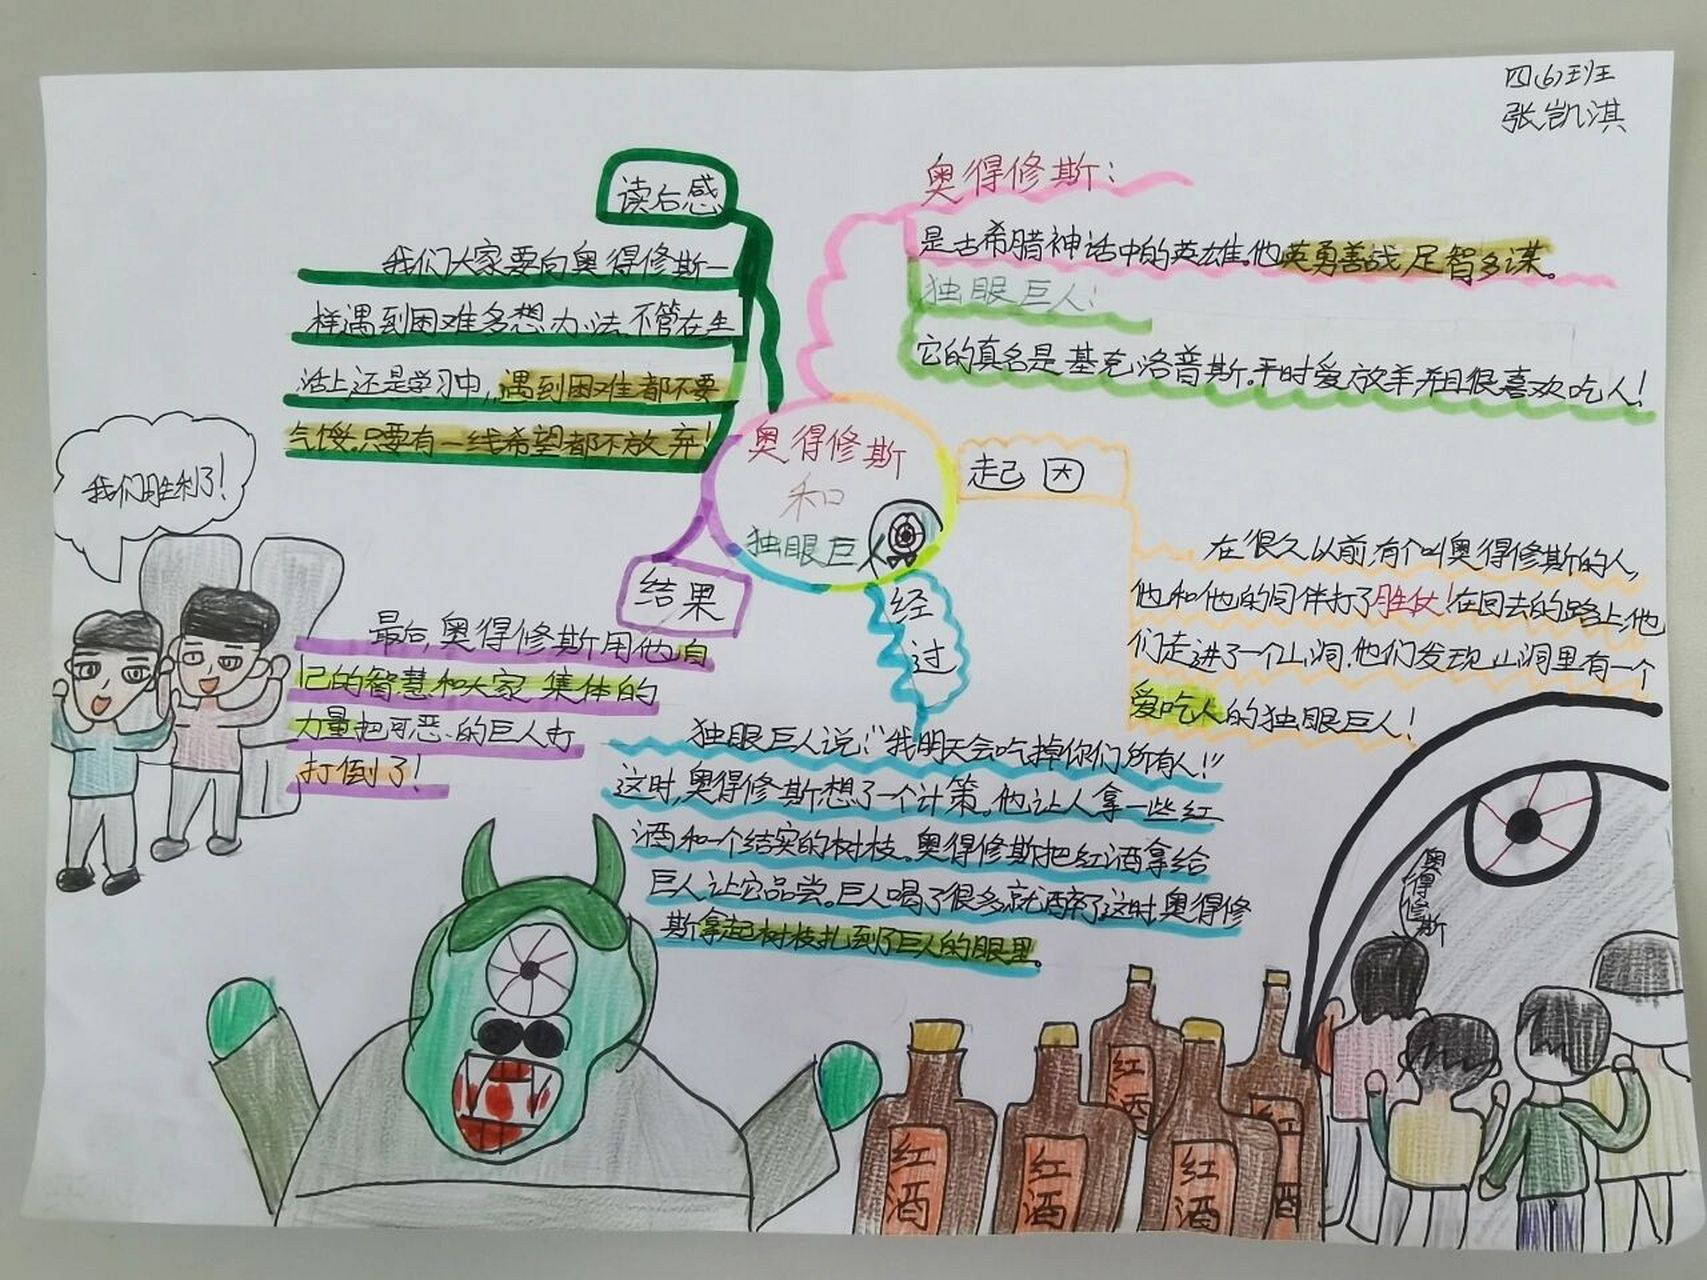 四(6)班
张凯淇
奥得修斯
和
独眼巨人
奥得修斯：
是古希腊神话中的英雄。他英勇善战足智多谋。
独眼巨人！
它的真名是基克洛普斯。平时爱放羊并且很喜欢吃人！
起因
在很久以前,有个叫奥得修斯的人,
他和他的同伴打了胜仗！在回去的路上,他
们走进了一个山洞.他们发现山洞里有一个
爱吃人的独眼巨人！
经
过
独眼巨人说:“我明天会吃掉你们所有人！”
这时,奥得修斯想了一个计策。他让人拿一些红
酒和一个结实的树枝。奥得修斯把红酒拿给
巨人让它品尝。巨人喝了很多就醉了这时,奥得修
斯拿起树枝扎到了巨人的眼里。
结果
最后,奥得修斯用他自
己的智慧和大家集体的
力量把可恶的巨人打
打倒了！
读后感
我们大家要向奥得修斯一
样遇到困难多想办法。不管在生
活上还是学习中,遇到困难都不要
气馁。只要有一线希望都不放弃！
我们胜利了！
奥得修斯
红酒
红酒
红酒
红酒
酒